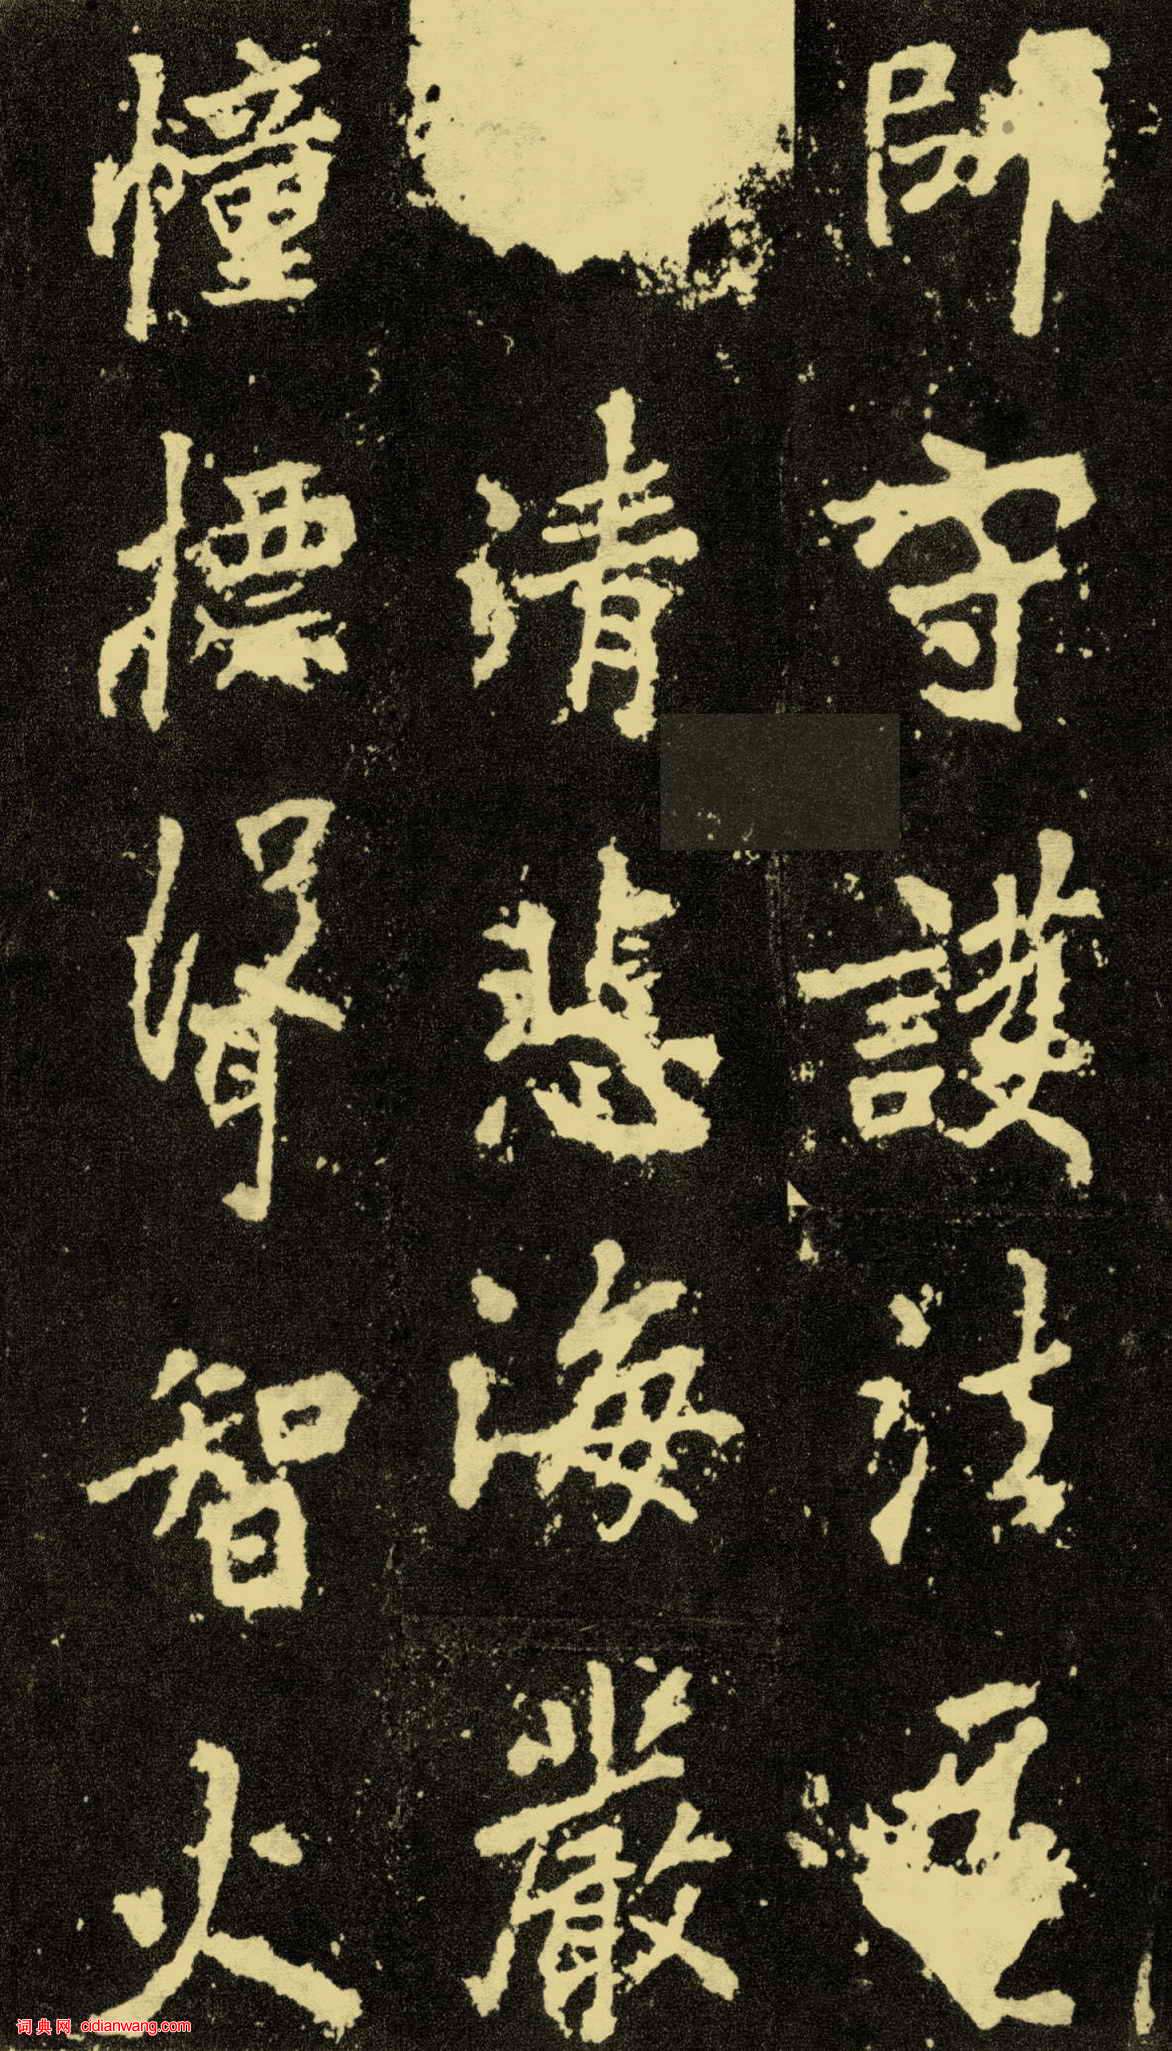 師守護法
清悲海嚴
幢摽得智火
词典网 cidianwang.com